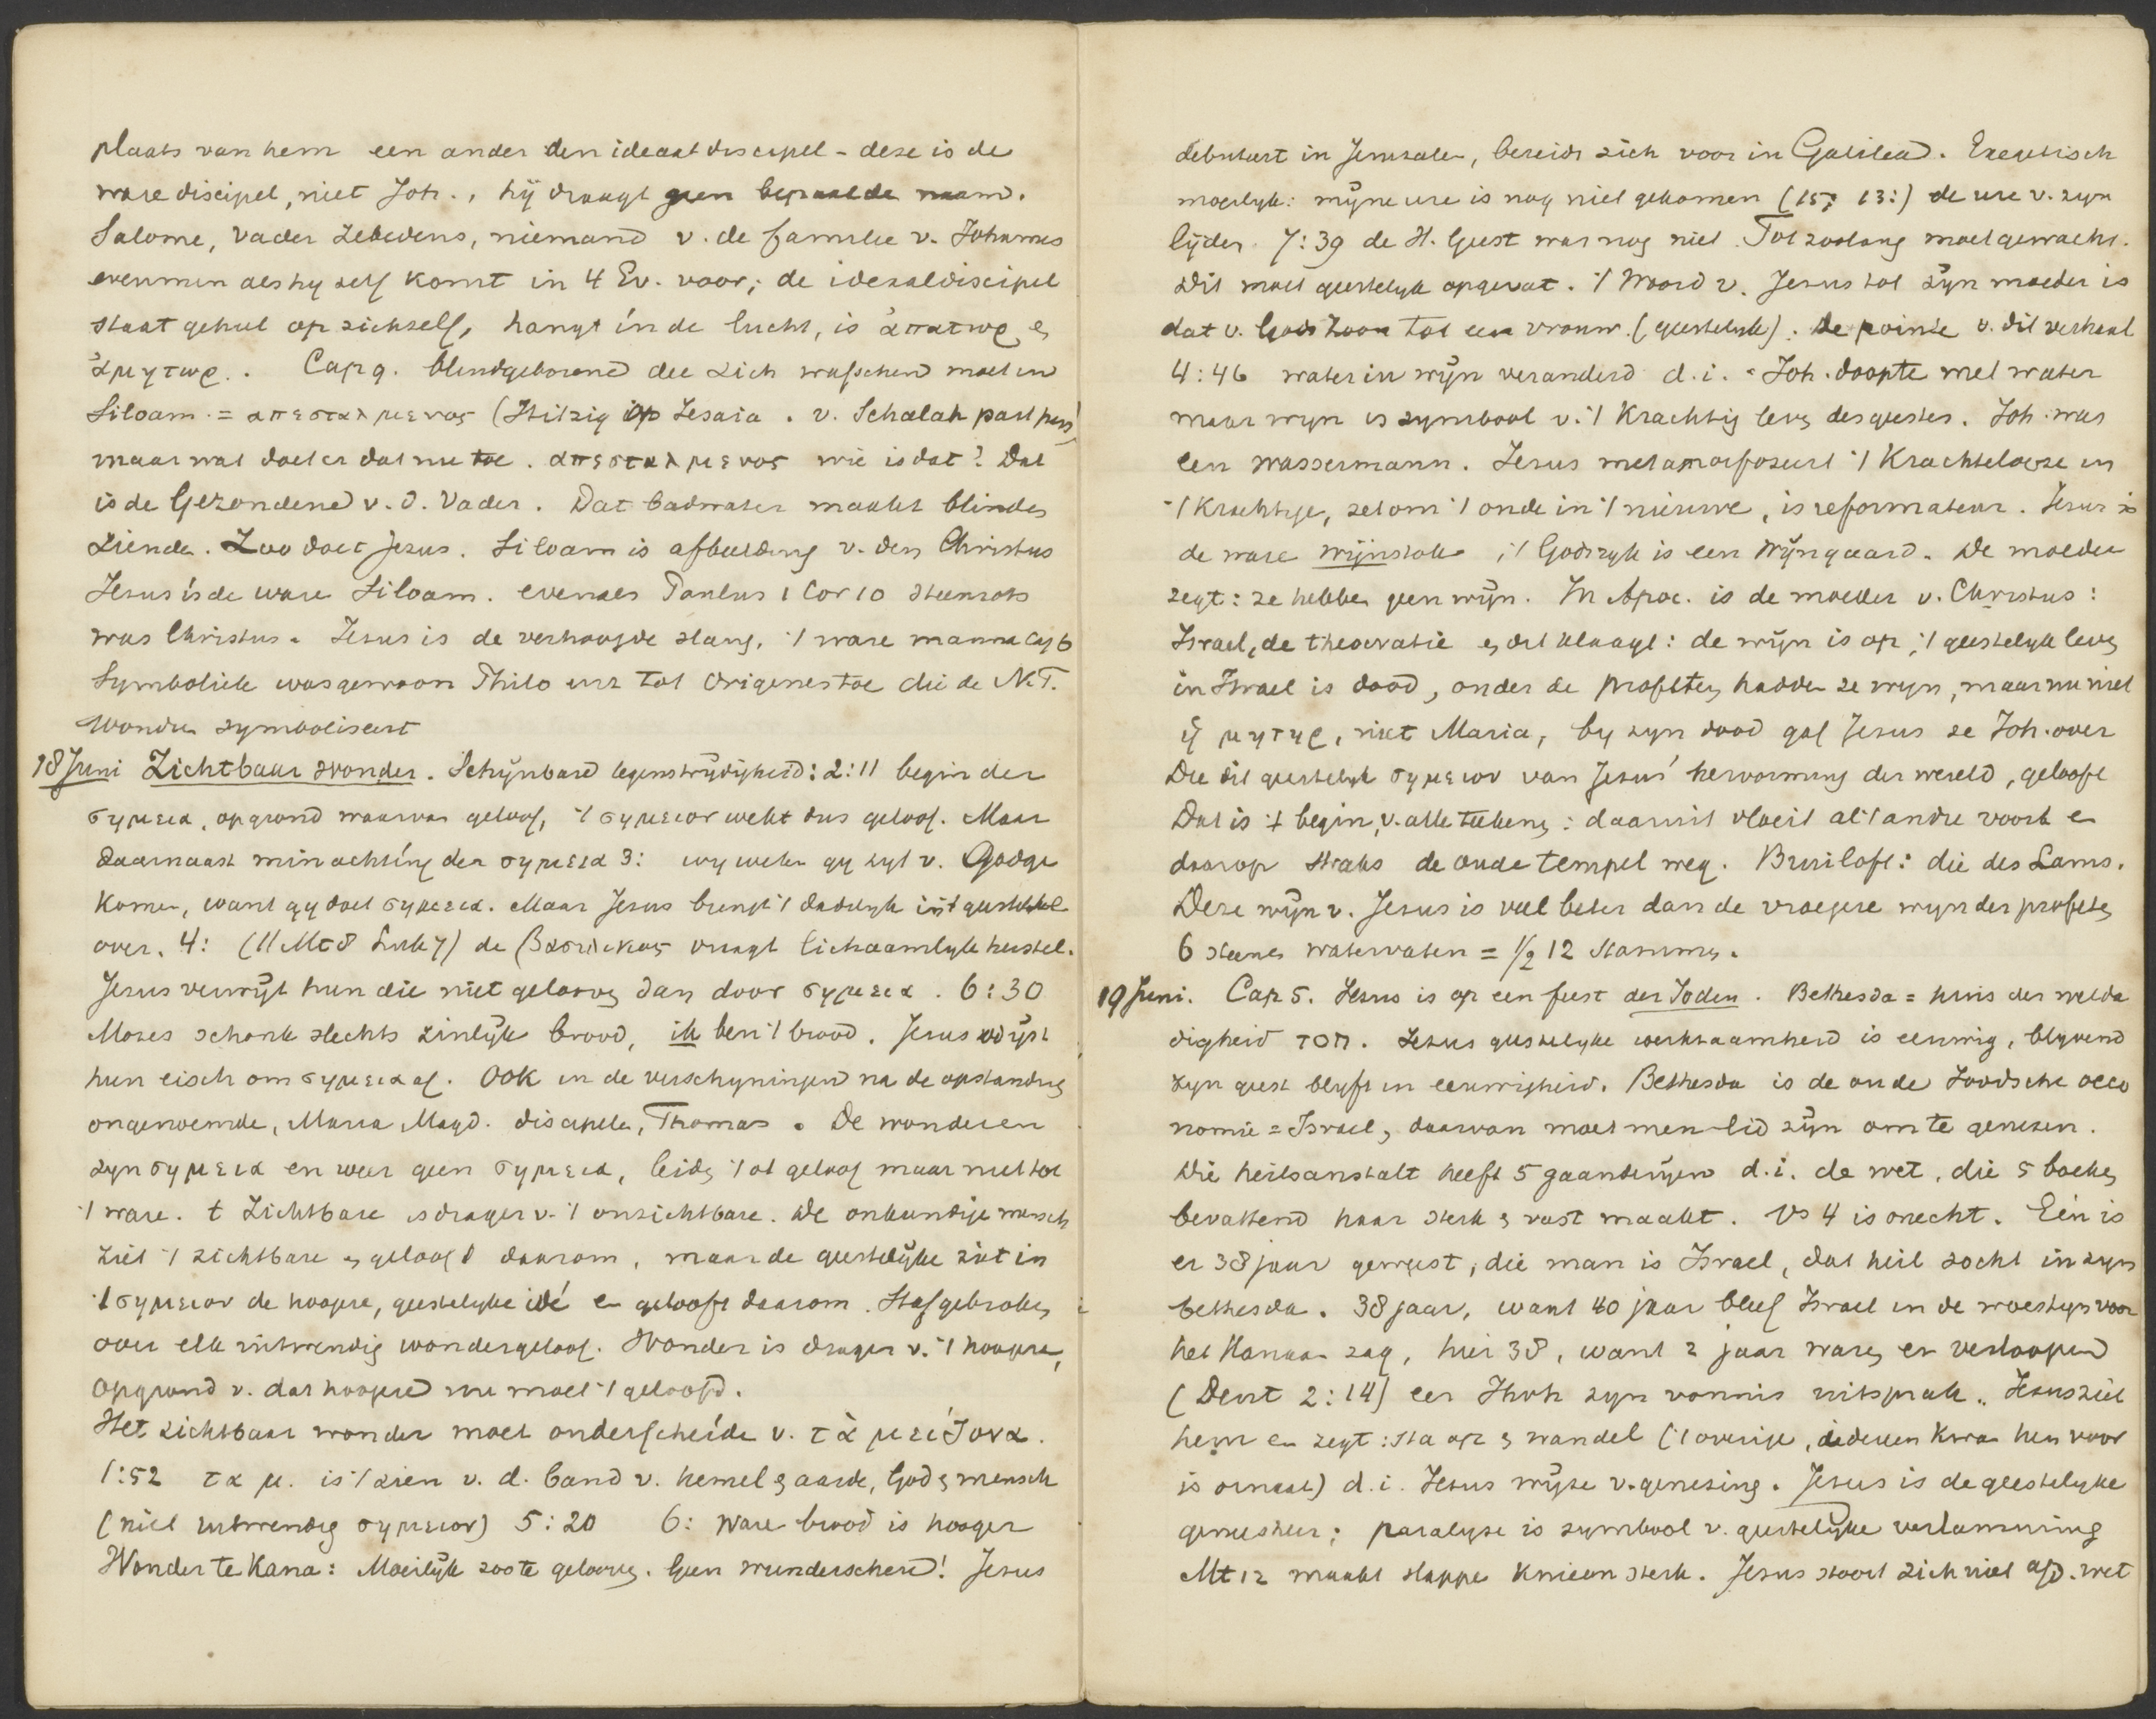 plaats van hem een ander den ideaaldiscipel - deze is de
ware discipel, niet Joh., hij draagt geen bepaalde naam.
Salome, vader Zebedeus, niemand v. de familie v. Johannes
evenmin als hy zelf komt in 4 Ev. voor; de idealdiscipel
staat geheel op zichzelf, hangt in de lucht, is ἀπατωρ en
ἀμητωρ. Cap 9. blindgeborene die zich wasschen moet in
Siloam = απεσταλμενος (Hitzig op Jesaia. v. Schalah part pass)
maar wat doet er dat nu toe. απεσταλμενος wie is dat? Dat
is de Gezondene v. d. Vader. Dat badwater maakt blinden
ziende. Zoo doet Jezus. Siloam is afbeelding v. den Christus
Jesus is de ware Siloam. evenals Paulus 1 Cor 10 steenrots
was Christus. Jesus is de verhoogde slang, 't ware manna cap 6
Symboliek was gewoon Philo enz tot Origenes toe die de N.T.
wonden symboliseert
18 Juni Zichtbaar wonder. Schijnbare tegenstrydigheid: 2:11 begin der
σημεια, op grond waarvan geloof, 't σημειον wekt dus geloof. Maar
daarnaast minachting der σημεια 3: wy weten gy zyt v. God ge
komen, want gy doet σημεια. Maar Jesus brengt 't dadelyk in 't geestelyke
over. 4: (11 Mt 8 Luk 7) de βασιλικος vraagt lichaamlyk herstel.
Jesus verwijt hun die niet gelooven dan door σημεια. 6:30
Mozes schonk slechts zinlijk brood, ik ben 't brood. Jesus wijst
hun eisch om σημεια af. Ook in de verschyningen na de opstanding
ongenoemde, Maria Magd. discipelen, Thomas. De wonderen
zyn σημεια en weer geen σημεια, leiden tot geloof maar niet tot
't ware. 't Zichtbare is drager v. 't onzichtbare. De onkundige mensch
ziet 't zichtbare en gelooft daarom, maar de geestelijke ziet in
't σημειον de hoogere, geestelyke idé en gelooft daarom. Staf gebroken
over elk uitwendig wondergeloof. Wonder is drager v. 't hoogere,
op grond v. dat hoogere nu moet 't geloofd.
Het zichtbaar wonder moet onderscheiden v. τὰ μειζονα.
1:52 τα μ. is 't zien v. d. band v. hemel en aarde, God en mensch
(niet uitwendig σημειον) 5:20 6: ware brood is hooger
Wonder te Kana: Moeilijk zoo te gelooven. Geen wunderscheu! Jesus
debuteert in Jeruzalem, bereidt zich voor in Galilea. Exegetisch
moeilyk: mijne ure is nog niet gekomen (15, 13:) de ure v. zyn
lijden. 7:39 de H. Geest was nog niet. Tot zoolang moet gewacht.
Dit moet geestelyk opgevat. 't Woord v. Jesus tot zijn moeder is
dat v. Gods Zoon tot een vrouw. (geestelyk). De pointe v. dit verhaal
4:46 water in wijn veranderd d.i. Joh. doopte met water
maar wyn is symbool v. 't krachtig leven des geestes. Joh. was
een wassermann. Jesus metamorfozeert 't krachtelooze in
't krachtige, zet om 't oude in 't nieuwe, is reformateur. Jesus is
de ware wijnstok, 't Godsryk is een wijngaard. De moeder
zegt: ze hebben geen wijn. In Apoc. is de moeder v. Christus:
Israel, de theocratie en dit klaagt: de wijn is op, 't geestelyk leven
in Israel is dood, onder de profeten hadden ze wyn, maar nu niet
ἡ μητηρ, niet Maria, by zyn dood gaf Jesus ze Joh. over
Die dit geestelyk σημειον van Jesus' hervorming der wereld, gelooft
Dat is 't begin v. alle teekens; daaruit vloeit al 't andre voort en
daarop straks de oude tempel weg. Bruiloft: die des Lams.
Deze wijn v. Jesus is veel beter dan de vroegere wyn der profeten
6 steenen watervaten = 1/2 12 stammen.
19 Juni. Cap 5. Jesus is op een feest der Joden. Bethesda = huis der welda
digheid חסד. Jesus geestelyke werkzaamheid is eeuwig, blyvend
zyn geest blyft in eeuwigheid. Bethesda is de oude Joodsche oeco
nomie = Israel, daarvan moet men lid zijn om te genezen.
Die heilsanstalt heeft 5 gaanderijen d.i. de wet, die 5 boeken
bevattend haar sterk en vast maakt. Vs 4 is onecht. Eén is
er 38 jaar geweest, die man is Israel, dat heil zocht in zyn
bethesda. 38 jaar, want 40 jaar bleef Israel in de woestyn voor
het Kanaan zag, hier 38, want 2 jaar waren er verloopen
(Deut 2:14) eer Jhvh zyn vonnis uitsprak. Jesus ziet
hem en zegt: sta op en wandel ('t overige, iedereen kwam hem voor
is ornaat) d.i. Jesus wijze v. genezing. Jesus is de geestelyke
genesheer; paralyse is symbool v. geestelyke verlamming
Mt 12 maakt slappe knieen sterk. Jesus stoort zich niet a/d. wet